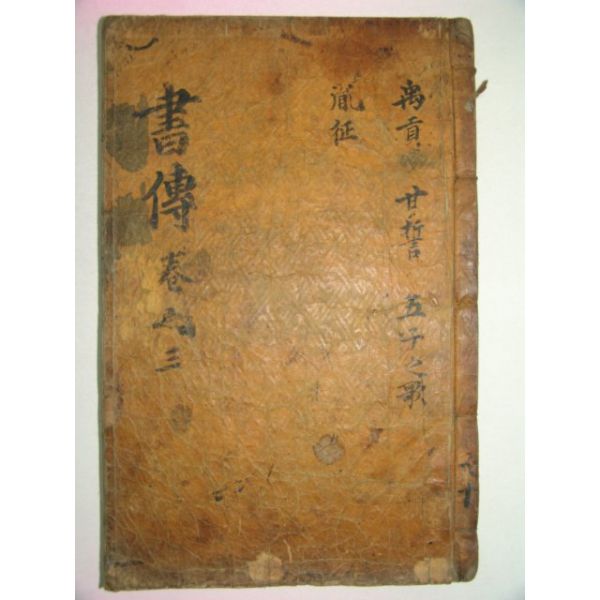 禹貢 甘誓 五子之歌
胤征
書傳 卷之三